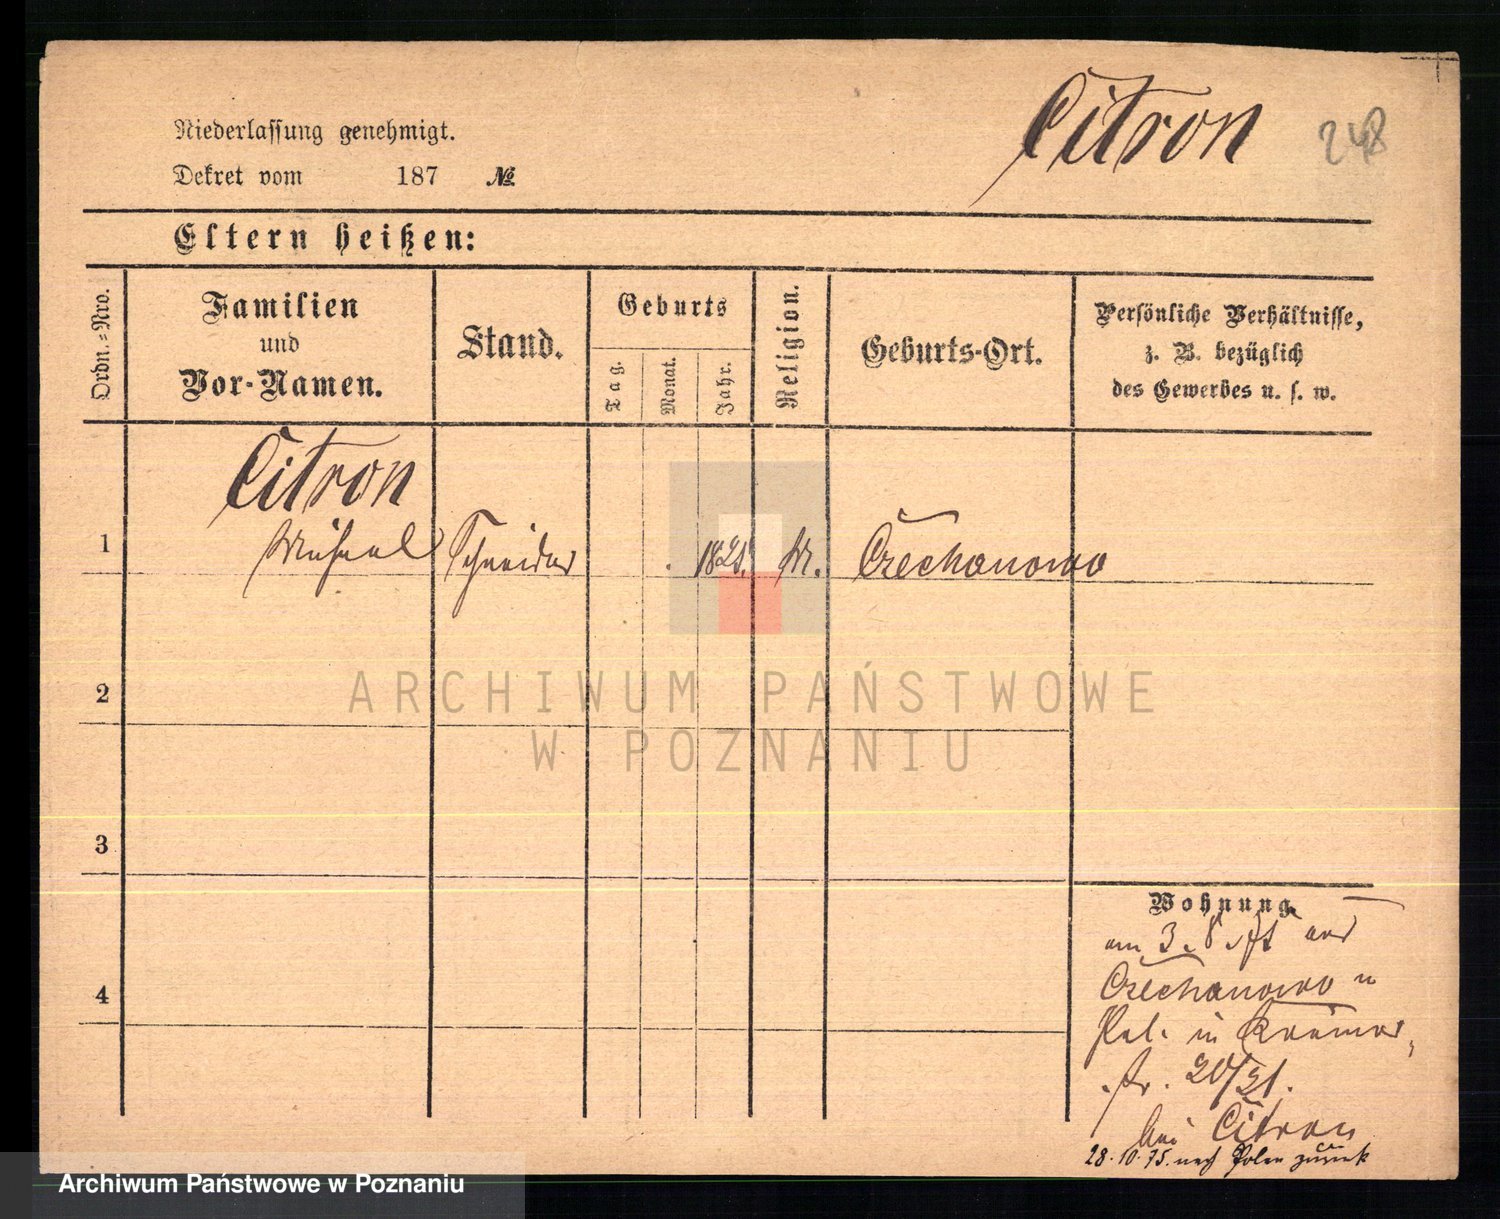 Citron 248
Niederlassung genehmigt.
Dekret vom 187 №
Eltern heißen:
Ordn.-Nro.
Familien
und
Vor-Namen.
Stand.
Geburts
Tag.
Monat.
Jahr.
Religion.
Geburts-Ort.
Persönliche Verhältnisse,
z. B. bezüglich
des Gewerbes u. s. w.
Citron
1 Michael Schneider 1821. M. Czechanowo
2
3
4
Wohnung.
am 3. 8. aus
Czechanowo
Pol. in Krämer
str. 20/21.
bei Citron
28.10.75. nach Polen zurück
ARCHIWUM PAŃSTWOWE
W POZNANIU
Archiwum Państwowe w Poznaniu